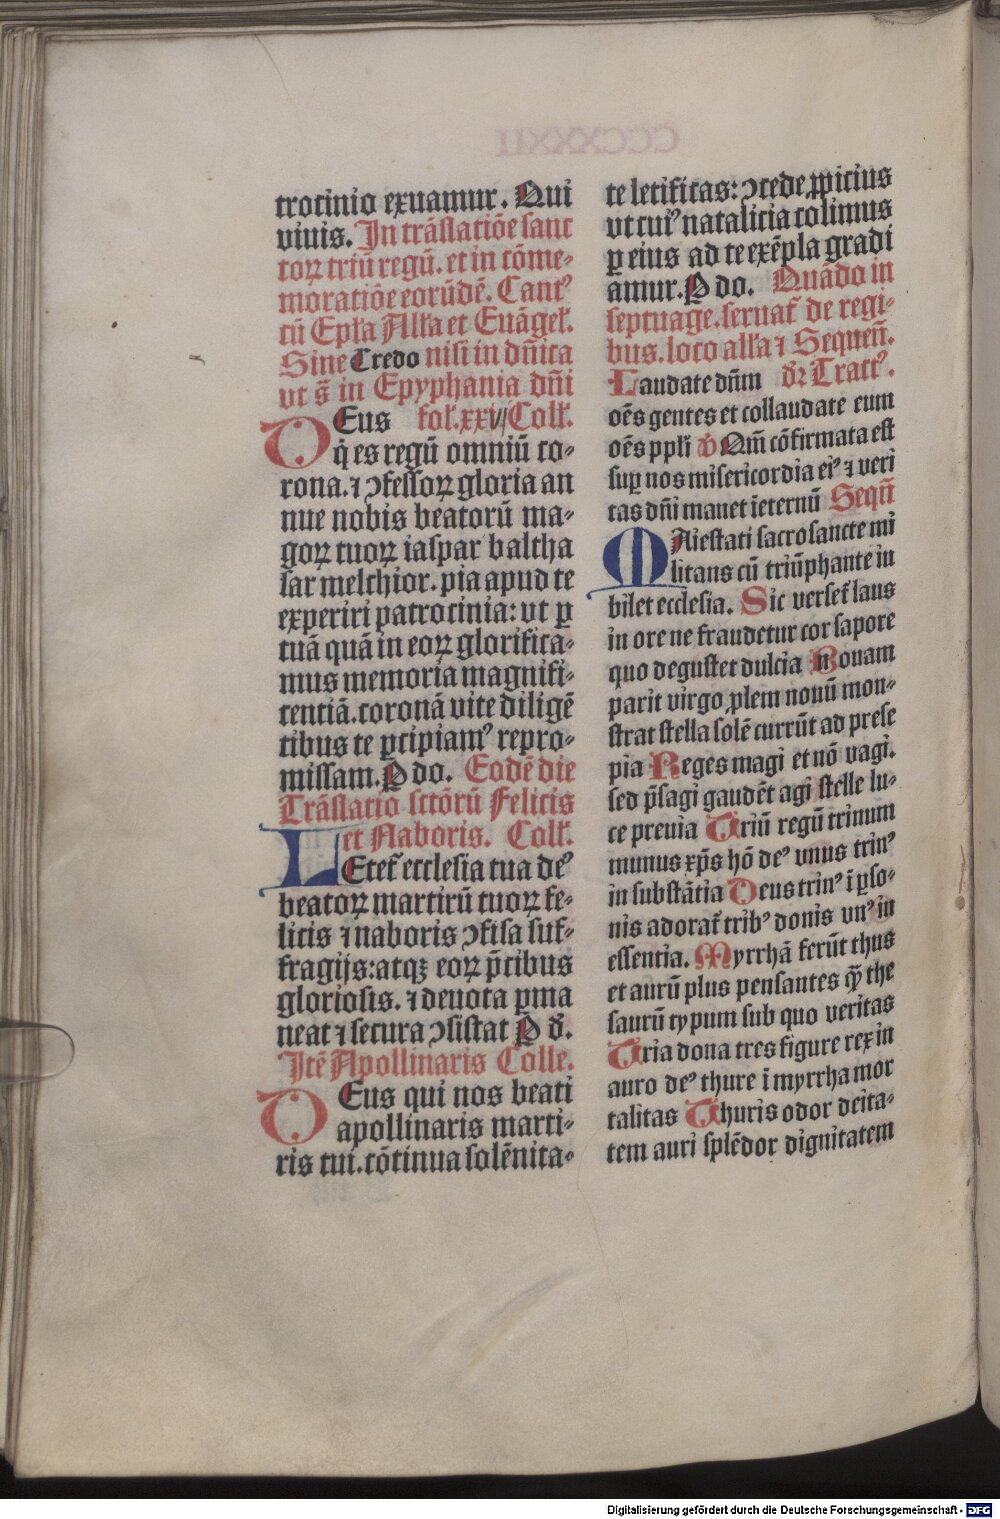 trocinio exuamur. Qui
viuis. In trāslatiōe sanc
toꝝ triū regū. et in cōme-
moratiōe eorūdē. Cantꝰ
cū Epła Ałła et Euāgeł.
Sine Credo nisi in dn̄ica
vt s̄ in Epyphania dn̄i
DEus foł.xxvij Coll'.
q̇ es regū omniū co-
rona. ⁊ ↄfessoꝝ gloria an
nue nobis beatorū ma-
goꝝ tuoꝝ iaspar baltha
sar melchior. pia apud te
experiri patrocinia: vt ꝑ
tuā quā in eoꝝ glorifica-
mus memoria magnifi-
centiā. coronā vite diligē
tibus te ꝑcipiamꝰ repro-
missam. P do. Eodē die
Trāslatio sctōrū Felicis
et Naboris. Coll'.
LEtef ecclesia tua deꝰ
beatoꝝ martirū tuoꝝ fe-
licis ⁊ naboris ↄfisa suf-
fragijs: atqꝫ eoꝝ p̄cibus
gloriosis. ⁊ deuota ꝑma
neat ⁊ secura ↄsistat P d̄.
Itē Apollinaris Colle.
DEus qui nos beati
apollinaris marti-
ris tui. cōtinua solēnita-
te letificas: ↄcede ꝓpicius
vt cuiꝰ natalicia colimus
ꝑ eius ad te exēpla gradi
amur. P do. Quādo in
septuage. seruat' de regi-
bus. loco ałła ⁊ Sequen̄.
Laudate dn̄m d̄r Tractꝰ.
oēs gentes et collaudate eum
oēs ppłi v̇ Qm̄ cōfirmata est
suꝑ nos misericordia eiꝰ ⁊ veri
tas dn̄i manet īeternū Seqn̄
MAiestati sacrosancte mi
litans cū triūphante iu
bilet ecclesia. Sic verset' laus
in ore ne fraudetur cor sapore
quo degustet dulcia Nouam
parit virgo ꝓlem nouū mon-
strat stella solē currūt ad prese
pia Reges magi et nō vagi.
sed p̄sagi gaudēt agi stelle lu-
ce preuia Triū regū trinum
munus xp̄s hō deꝰ vnus trinꝰ
in substātia Deus trinꝰ ī ꝑso-
nis adorat' tribꝰ donis vnꝰ in
essentia. Myrrhā ferūt thus
et aurū plus pensantes qꝫ the
saurū typum sub quo veritas
Tria dona tres figure rex in
auro deꝰ thure ī myrrha mor
talitas Thuris odor deita-
tem auri splēdor dignitatem
Digitalisierung gefördert durch die Deutsche Forschungsgemeinschaft - DFG